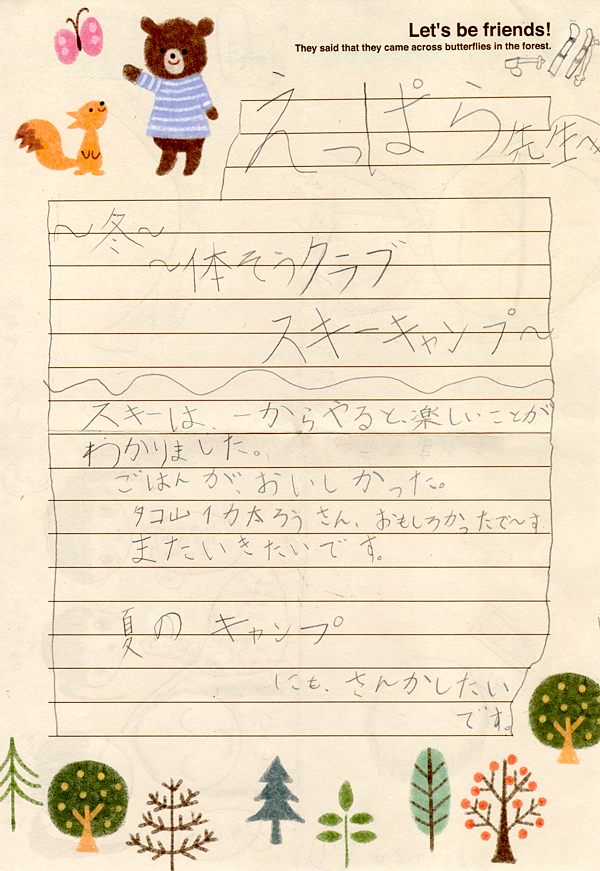 Let's be friends!
They said that they came across butterflies in the forest.
えっぱら先生へ
～冬～
～体そうクラブ
スキーキャンプ～
スキーは、一からやると、楽しいことが
わかりました。
ごはんが、おいしかった。
タコ山イカ太ろうさん、おもしろかったで～す
またいきたいです。
夏のキャンプ
にも、さんかしたい
です。